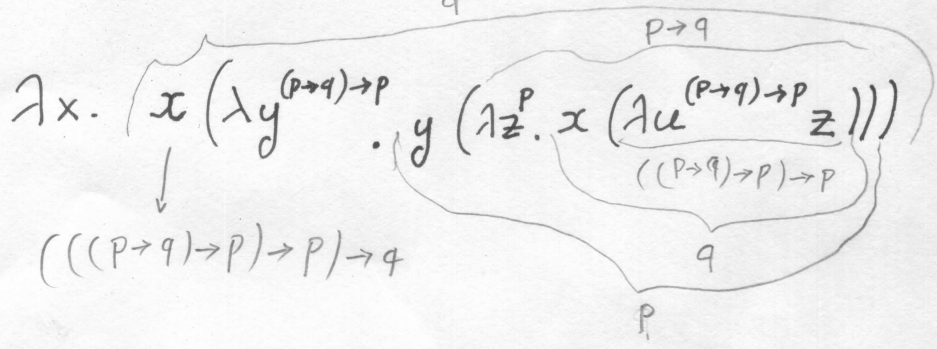 q
p→q
λx. x(λy^{(p→q)→p}. y(λz^p. x(λu^{(p→q)→p} z)))
((p→q)→p)→p
(((p→q)→p)→p)→q
q
p